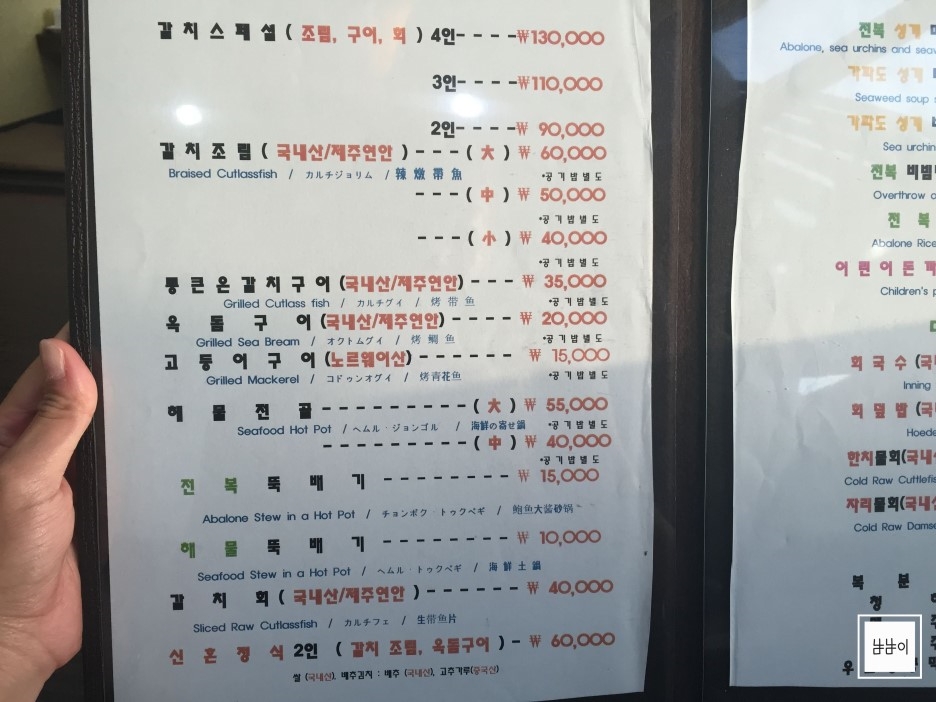 갈치스페셜 ( 조림, 구이, 회 ) 4인----₩130,000
3인----₩110,000
2인----₩ 90,000
갈치조림 ( 국내산/제주연안 )---( 大 ) ₩ 60,000
Braised Cutlassfish / カルチジョリム / 辣燉帶魚 *공기밥별도
---( 中 ) ₩ 50,000
*공기밥별도
---( 小 ) ₩ 40,000
*공기밥별도
통큰은갈치구이 (국내산/제주연안)---- ₩ 35,000
Grilled Cutlass fish / カルチグイ / 烤带鱼 *공기밥별도
옥돔구이 (국내산/제주연안)---- ₩ 20,000
Grilled Sea Bream / オクトムグイ / 烤鯛鱼 *공기밥별도
고등어구이 (노르웨이산)------ ₩ 15,000
Grilled Mackerel / コドゥンオグイ / 烤青花鱼 *공기밥별도
해물전골----------( 大 ) ₩ 55,000
Seafood Hot Pot / ヘムル・ジョンゴル / 海鮮の寄せ鍋 *공기밥별도
----------( 中 ) ₩ 40,000
*공기밥별도
전복뚝배기-------- ₩ 15,000
Abalone Stew in a Hot Pot / チョンボク・トゥクベギ / 鮑鱼大酱砂锅
해물뚝배기-------- ₩ 10,000
Seafood Stew in a Hot Pot / ヘムル・トゥクベギ / 海鮮土鍋
갈치회 ( 국내산/제주연안 )------ ₩ 40,000
Sliced Raw Cutlassfish / カルチフェ / 生带鱼片
신혼정식 2인 ( 갈치 조림, 옥돔구이 )- ₩ 60,000
쌀 (국내산), 배추김치 : 배추 (국내산), 고추가루(중국산)
전복 성게
Abalone, sea urchins and
가파도 성게
Seaweed soup
가파도 성게
Sea urchin
전복
Overthrow
전복
Abalone Rice
어린이돈
Children's
회국수
Inning
회덮밥
한치물회(국내
Cold Raw
자리물회(국내
Cold Raw
복분
뽐뽐이